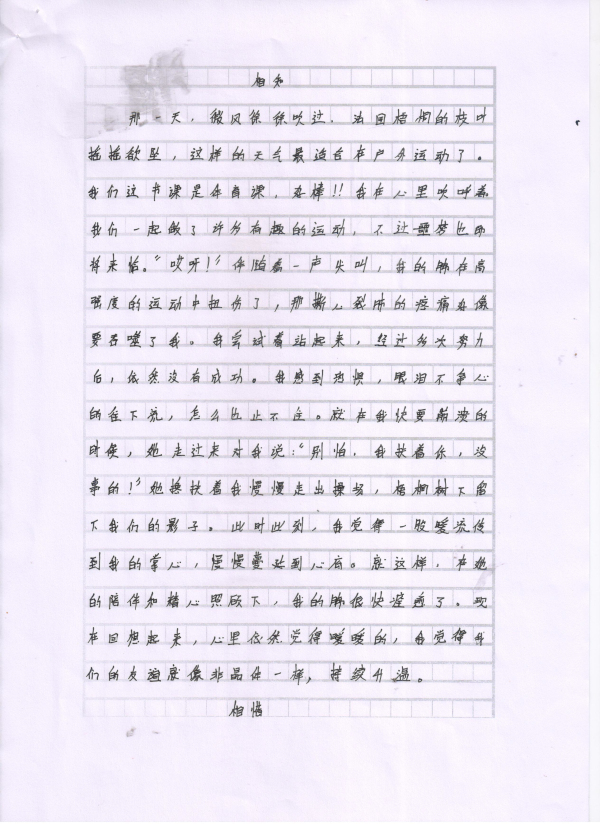 相知
那一天，微风徐徐吹过，法国梧桐的枝叶
摇摇欲坠，这样的天气最适合在户外运动了。
我们这节课是体育课，好棒!!我在心里欢呼着
我们一起做了许多有趣的运动，不过噩梦也即
将来临。“哎呀!”伴随着一声尖叫，我的脚在高
强度的运动中扭伤了，那撕心裂肺的疼痛好像
要吞噬了我。我尝试着站起来，经过多次努力
后，依然没有成功。我感到恐惧，眼泪不争心
的往下流，怎么也止不住。就在我快要崩溃的
时候，她走过来对我说：“别怕，我扶着你，没
事的!”她搀扶着我慢慢走出操场，梧桐树下留
下我们的影子。此时此刻，我觉得一股暖流传
到我的掌心，慢慢蔓延到心底。就这样，在她
的陪伴和精心照顾下，我的脚很快痊愈了。现
在回想起来，心里依然觉得暖暖的，我觉得我
们的友谊就像非晶体一样，持续升温。
相惜